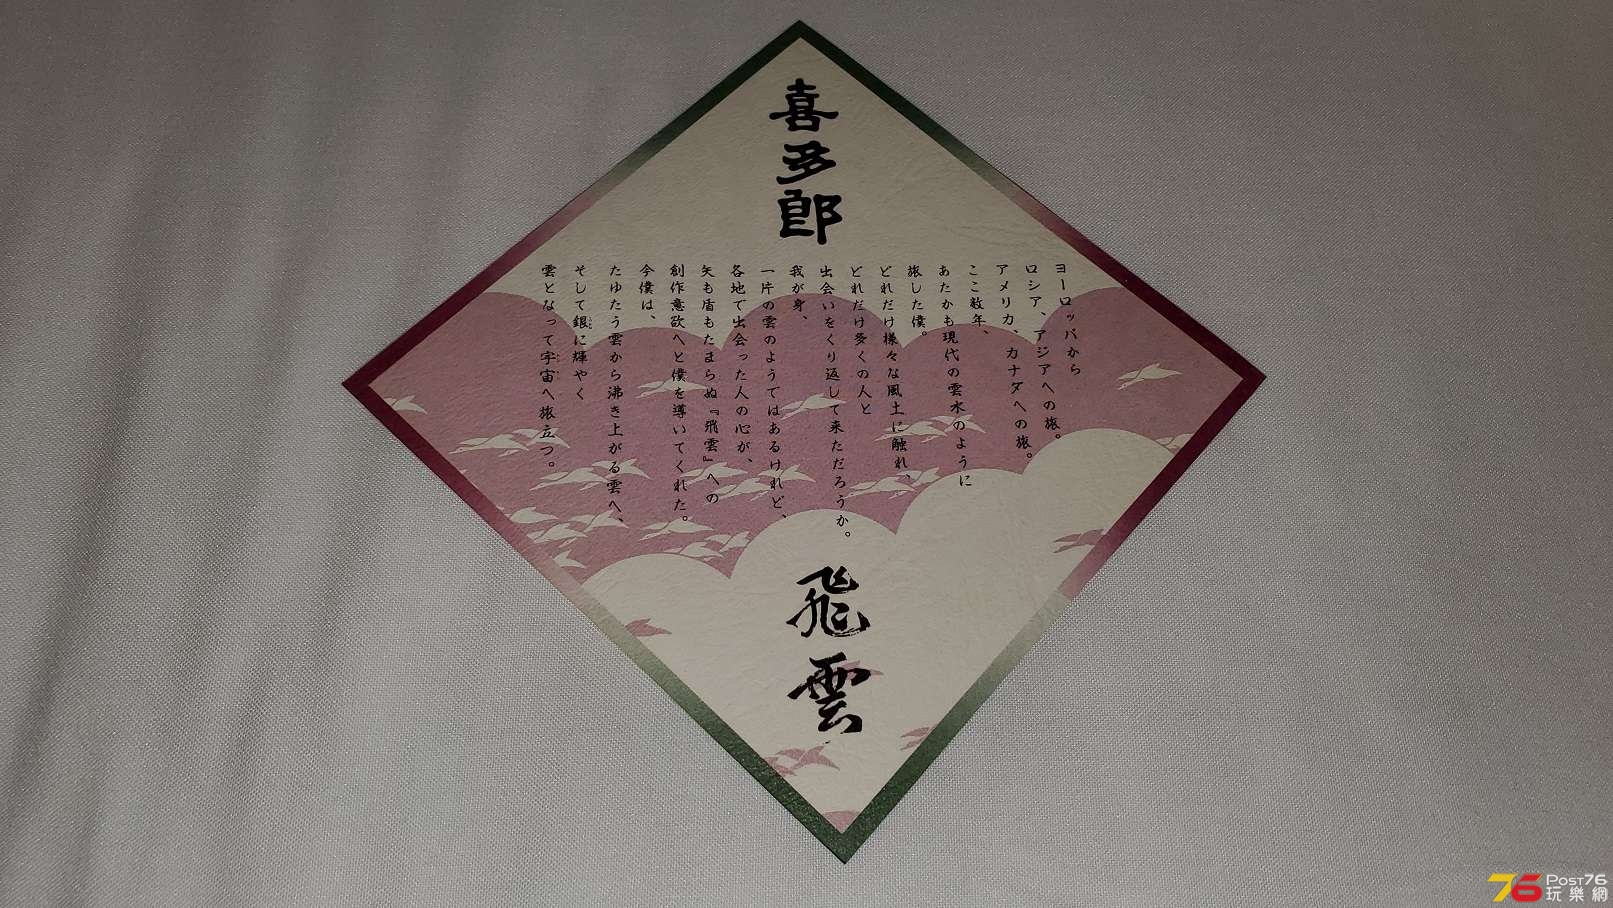 喜多郎
ヨーロッパから
ロシア、アジアへの旅。
アメリカ、カナダへの旅。
ここ数年、
あたかも現代の雲水のように
旅した僕。
どれだけ様々な風土に触れ、
どれだけ多くの人と
出会いをくり返して来ただろうか。
我が身、
一片の雲のようではあるけれど、
各地で出会った人の心が、
矢も盾もたまらぬ『飛雲』への
創作意欲へと僕を導いてくれた。
今僕は、
たゆたう雲から沸き上がる雲へ、
そして銀に輝やく
雲となって宇宙へ旅立つ。
飛雲
76 POST76
玩樂網